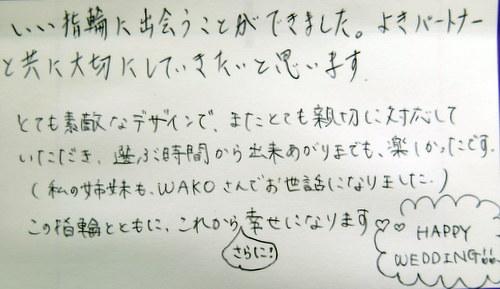 いい指輪に出会うことができました。よきパートナー
と共に大切にしていきたいと思います
とても素敵なデザインで、またとても親切に対応して
いただき、選ぶ時間から出来あがりまでも、楽しかったです。
(私の姉妹も、WAKOさんでお世話になりました.)
この指輪とともに、これから幸せになります
さらに!
HAPPY
WEDDING!!